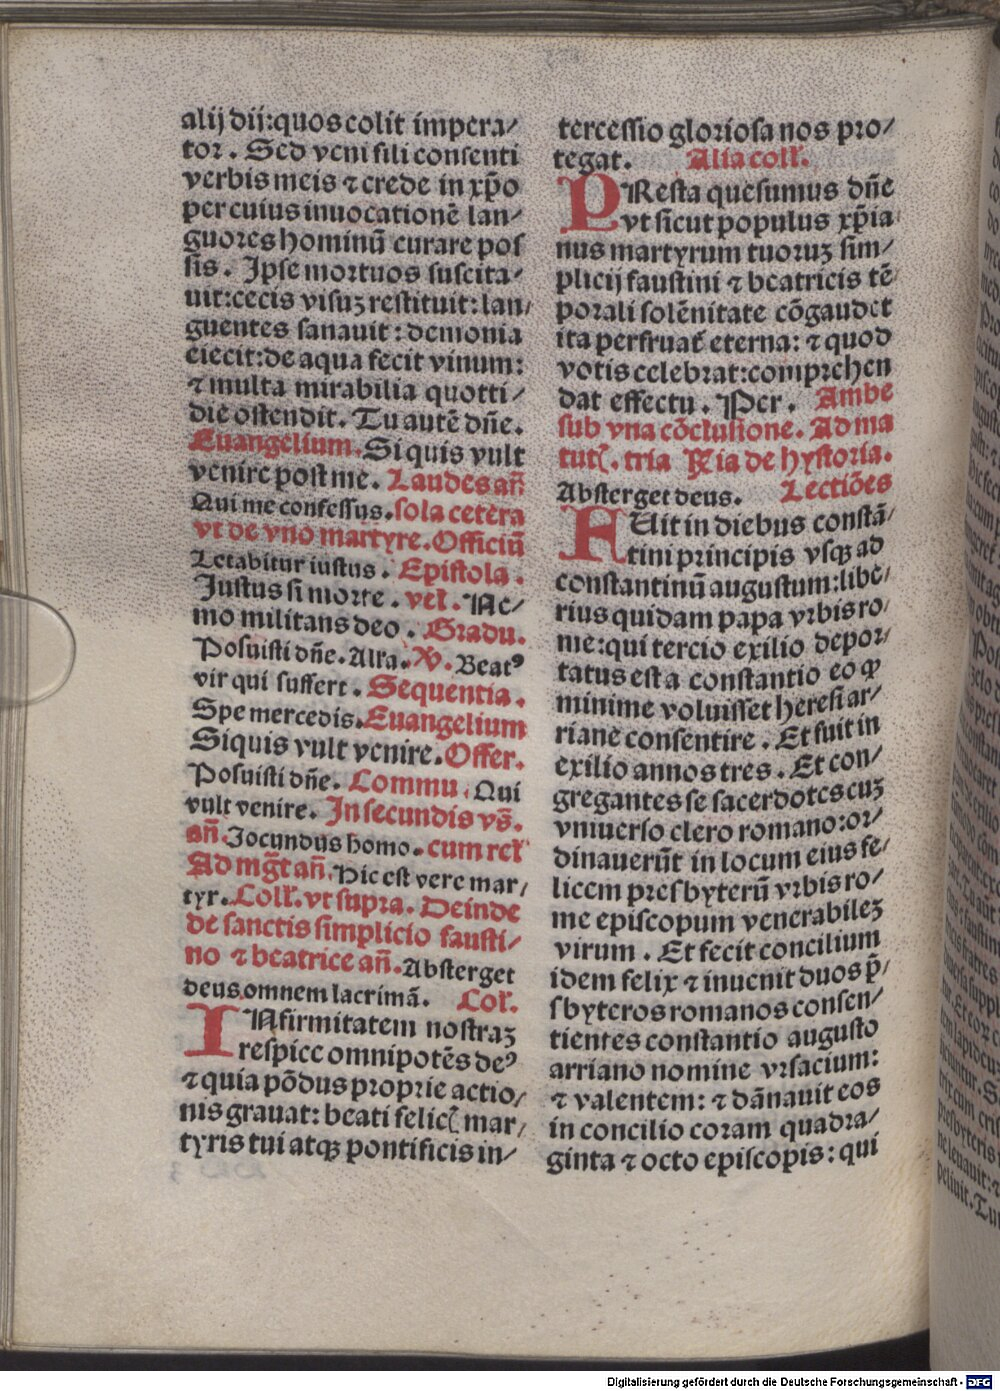 alij dij:quos colit impera⸗
tor. Sed veni fili consenti
verbis meis ⁊ crede in xp̄o
per cuius inuocationē lan⸗
guores hominū curare pos
sis. Ipse mortuos suscita⸗
uit:cecis visuʒ restituit:lan⸗
guentes sanauit:demonia
eiecit:de aqua fecit vinum:
⁊ multa mirabilia quotti⸗
die ostendit. Tu autē dn̄e.
Euangelium. Siquis vult
venire post me. Laudes an̄
Qui me confessus. sola cetera
vt de vno martyre. Officiū
Letabitur iustus. Epistola.
Justus si morte. vel. Ne⸗
mo militans deo. Gradu.
Posuisti dn̄e. Alla. V. Beatꝰ
vir qui suffert. Sequentia.
Spe mercedis. Euangelium
Siquis vult venire. Offer.
Posuisti dn̄e. Commu. Qui
vult venire. In secundis vs̄.
an̄. Jocundus homo. cum rel̄
Ad mḡt an̄. Hic est vere mar⸗
tyr. Coll̄. vt supra. Deinde
de sanctis simplicio fausti⸗
no ⁊ beatrice an̄. Absterget
deus omnem lacrimā. Col̄.
INfirmitatem nostraʒ
respice omnipotēs deꝰ
⁊ quia pōdus proprie actio⸗
nis grauat: beati felicꝭ mar⸗
tyris tui atqʒ pontificis in⸗
tercessio gloriosa nos pro⸗
tegat. Alia coll̄.
PResta quesumus dn̄e
vt sicut populus xp̄ia
nus martyrum tuoruʒ sim⸗
plicij faustini ⁊ beatricis tē
porali solēnitate cōgaudet
ita perfruat̄ eterna: ⁊ quod
votis celebrat:comprehen
dat effectu. Per. Ambe
sub vna cōclusione. Ad ma
tutꝭ. tria ℟ia de hystoria.
Absterget deus. Lectiōes
FElit in diebus constā⸗
tini principis vsqʒ ad
constantinū augustum:libe⸗
rius quidam papa vrbis ro⸗
me:qui tercio exilio depor⸗
tatus est a constantio eo ꝙ
minime voluisset heresi ar⸗
riane consentire. Et fuit in
exilio annos tres. Et con⸗
gregantes se sacerdotes cuʒ
vniuerso clero romano:or⸗
dinauerūt in locum eius fe⸗
licem presbyterū vrbis ro⸗
me episcopum venerabileʒ
virum. Et fecit concilium
idem felix ⁊ inuenit duos p̄⸗
sbyteros romanos consen⸗
tientes constantio augusto
arriano nomine vrsacium:
⁊ valentem: ⁊ dānauit eos
in concilio coram quadra⸗
ginta ⁊ octo episcopis: qui
Digitalisierung gefördert durch die Deutsche Forschungsgemeinschaft - DFG